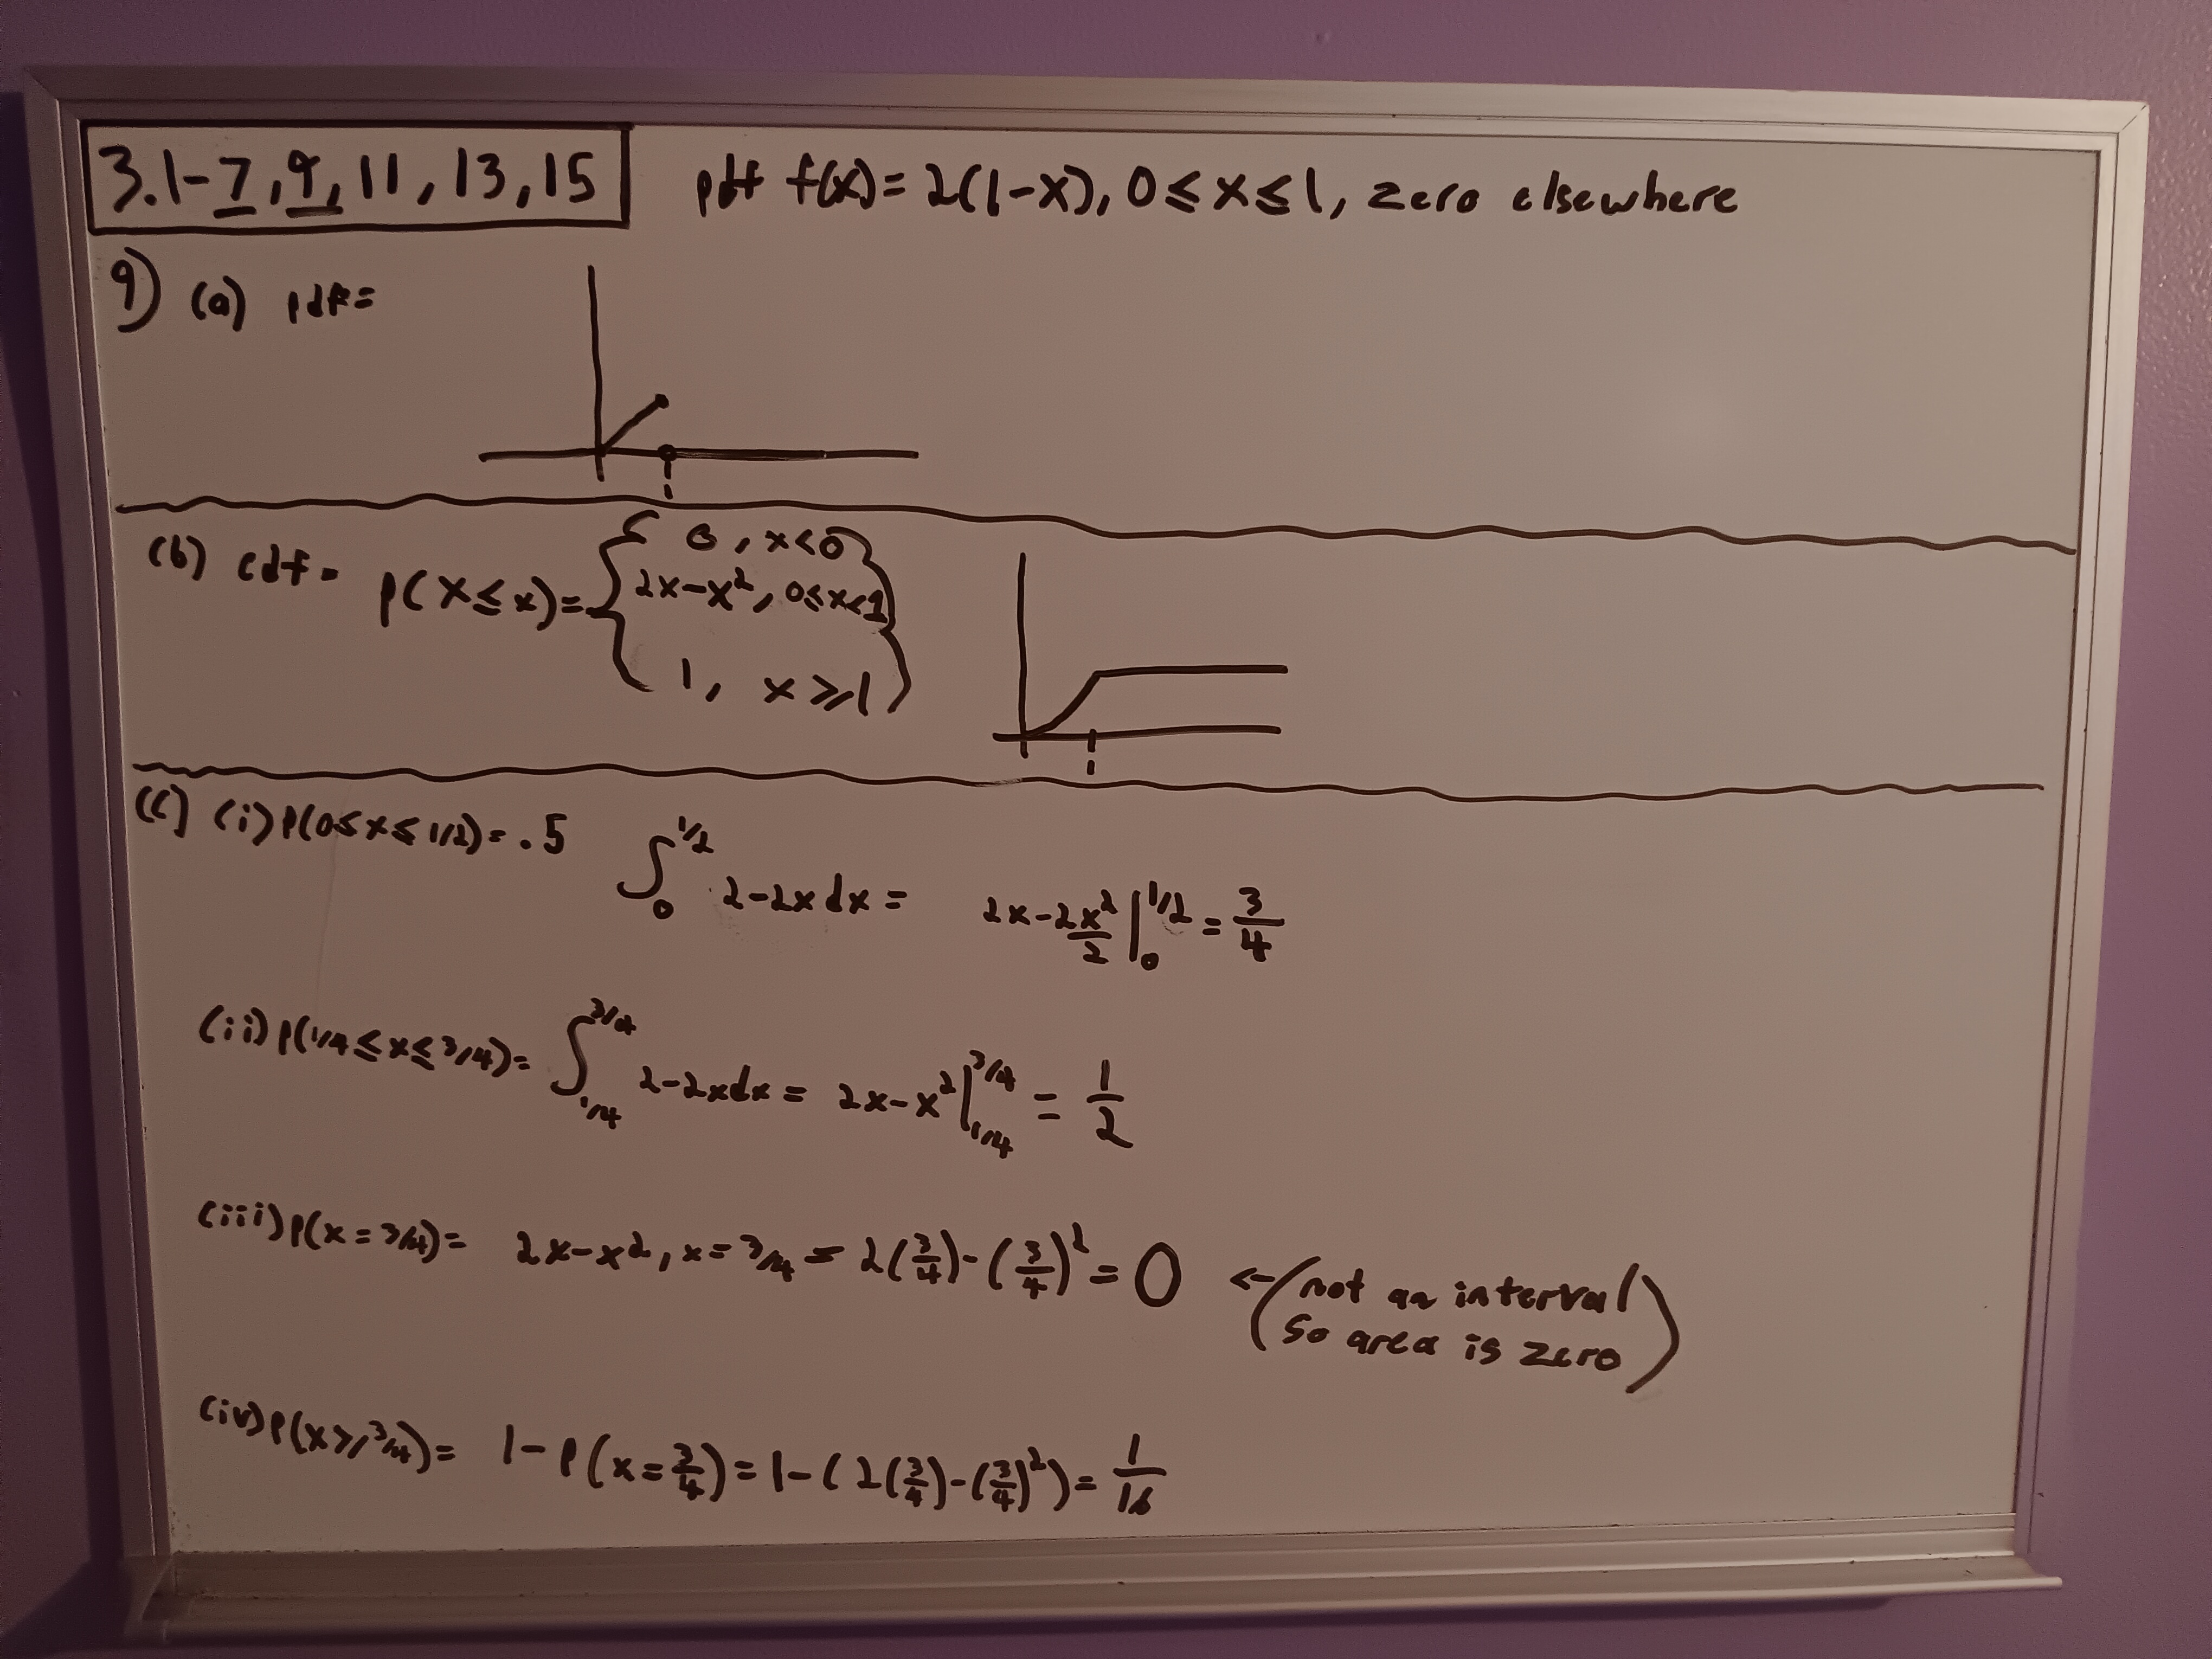 3.1-7, 9, 11, 13, 15 pdf f(x) = 2(1-x), 0 ≤ x ≤ 1, zero elsewhere
9) (a) pdf =
(b) cdf = P(X ≤ x) = { 0, x<0
2x-x², 0≤x<1
1, x ≥ 1 }
(c) (i) P(0 ≤ x ≤ 1/2) = .5 ∫₀^{1/2} 2-2x dx = 2x - 2x²/2 |₀^{1/2} = 3/4
(ii) P(1/4 ≤ x ≤ 3/4) = ∫_{1/4}^{3/4} 2-2x dx = 2x - x² |_{1/4}^{3/4} = 1/2
(iii) P(x = 3/4) = 2x-x², x = 3/4 = 2(3/4) - (3/4)² = 0 ← (not an interval
so area is zero)
(iv) P(x ≥ 3/4) = 1 - P(x = 3/4) = 1 - (2(3/4) - (3/4)²) = 1/16